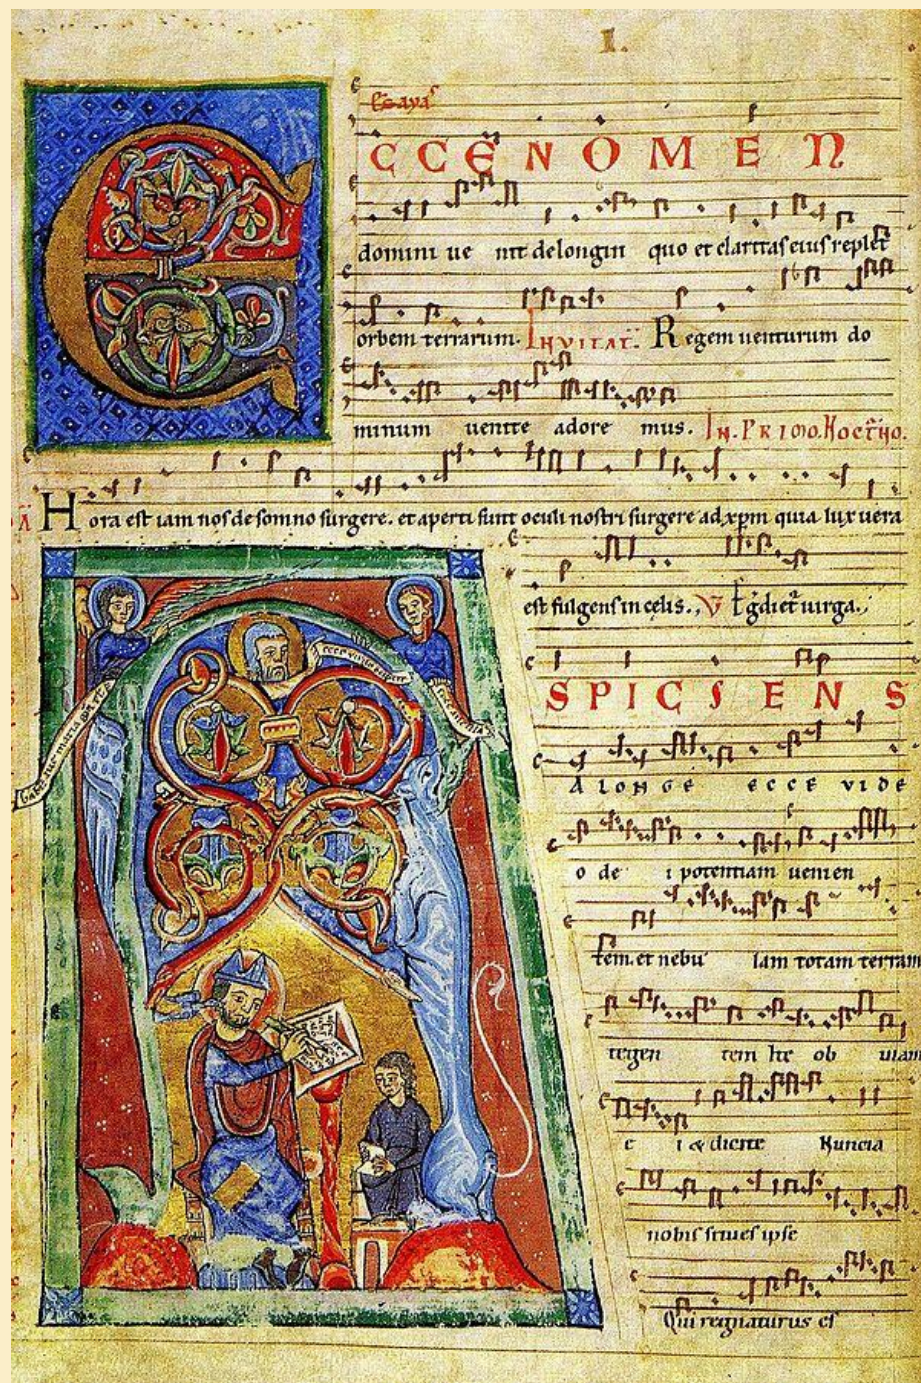 I.
Esayas
CCE NOMEN
domini ue nit delongin quo et claritas eius replet
orbem terrarum. INVITAT. Regem uenturum do
minum uenite adore mus. IN. PRIMO. NOCTNO.
A Hora est iam nos de somno surgere. et aperti sunt oculi nostri surgere ad xpm quia lux uera
est fulgens in celis. V Egdiet uirga.
SPICIENS
A LONGE ECCE VIDE
o de i potentiam uenien
tem. et nebu lam totam terram
tegen tem Ite ob uiam
e i & dicite Nuncia
nobis si tu es ipse
Qui regnaturus es